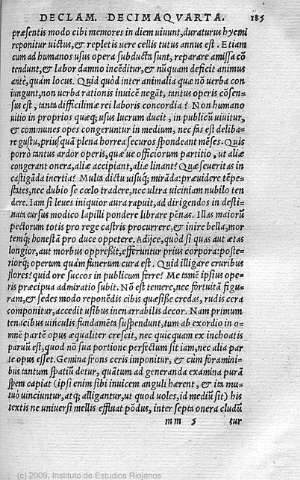 DECLAM. DECIMAQVARTA. 185
præsentis modo cibi memores in diem uiuunt, duraturus hyemi
reponitur uictus, & repletis uere cellis tutus annus est. Etiam
cum ad humanos usus opera subducta sunt, reparare amissa cō
tendunt, & labor damno inceditur, & nūquam deficit animus
ante, quàm locus. Quid quòd inter animalia quæ non uerba con
iungunt, non uerba rationis inuicē negāt, tantus operis cōsen-
sus est, tanta difficilimæ rei laboris concordia? Non humano
uitio in proprios quæq; usus lucrum ducit, in publicū uiuitur,
& communes opes congeruntur in medium, nec fas est deliba-
re gustu, priusquā plena horrea securos spondeant mēses. Quis
porrò tantus ardor operis, quæ uæ officiorum partitio, ut aliæ
congerant onera, aliæ accipiant, aliæ linant? Quæ seueritas in
castigāda inertia? Multa dictu uisúq; mirāda: præuidere tēpe-
states, nec dubio se cœlo tradere, nec ultra uicinium nubilo ten
dere. Iam si leues iniquior aura rapuit, ad dirigendos in desti-
natū cursus modico lapilli pondere librare penas. Illas maiorū
pectorum totis pro rege castris procurrere, & inire bella, mor
temq; honestā pro duce oppetere. Adijce, quòd si quas aut ætas
longior, aut morbus oppressit, efferuntur prius corpora, poste-
riorq; operum quàm funerum cura est. Quid illigare cruribus
flores? quid ore succos in publicum ferre? Me tamē ipsius ope-
ris præcipua admiratio subit. Nō est temere, nec fortuita figu-
ram, & sedes modo reponēdis cibis quæsisse credas, rudis cera
componitur, accedit usibus inenarrabilis decor. Nam primum
tenacibus uinculis fundamēta suspendunt, tum ab exordio in o-
mnē partē opus æqualiter crescit, nec quicquam ex inchoatis
parui est, quod nō sua portione perfectum sit iam, nec alia par
te opus esset. Gemina frons ceris imponitur, & cùm foramini-
bus tantum spatij detur, quātum ad generanda examina purā
spem capiat (ipsi enim sibi inuicem anguli harent, & ita mu-
tuò unciuntur, atq; alligantur, ut quod uoles, id mediū sit) his
textis ne uniuersi mellis effluat pōdus, inter septa onera cludū
mm 5 tur
(c) 2009, Instituto de Estudios Riojanos